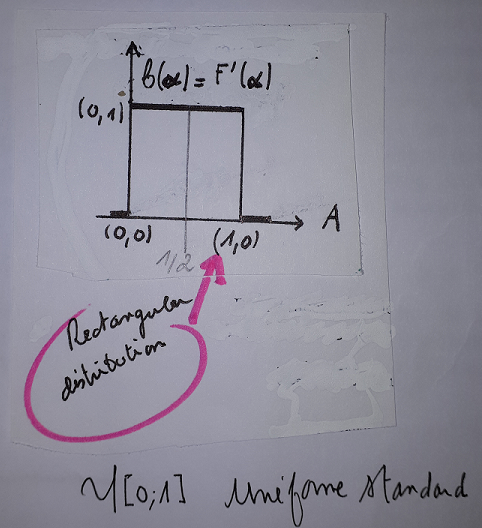 f(α) = F'(α)
(0,1)
A
(0,0)
(1,0)
1/2
Rectangular
distribution
U[0;1] Uniforme standard